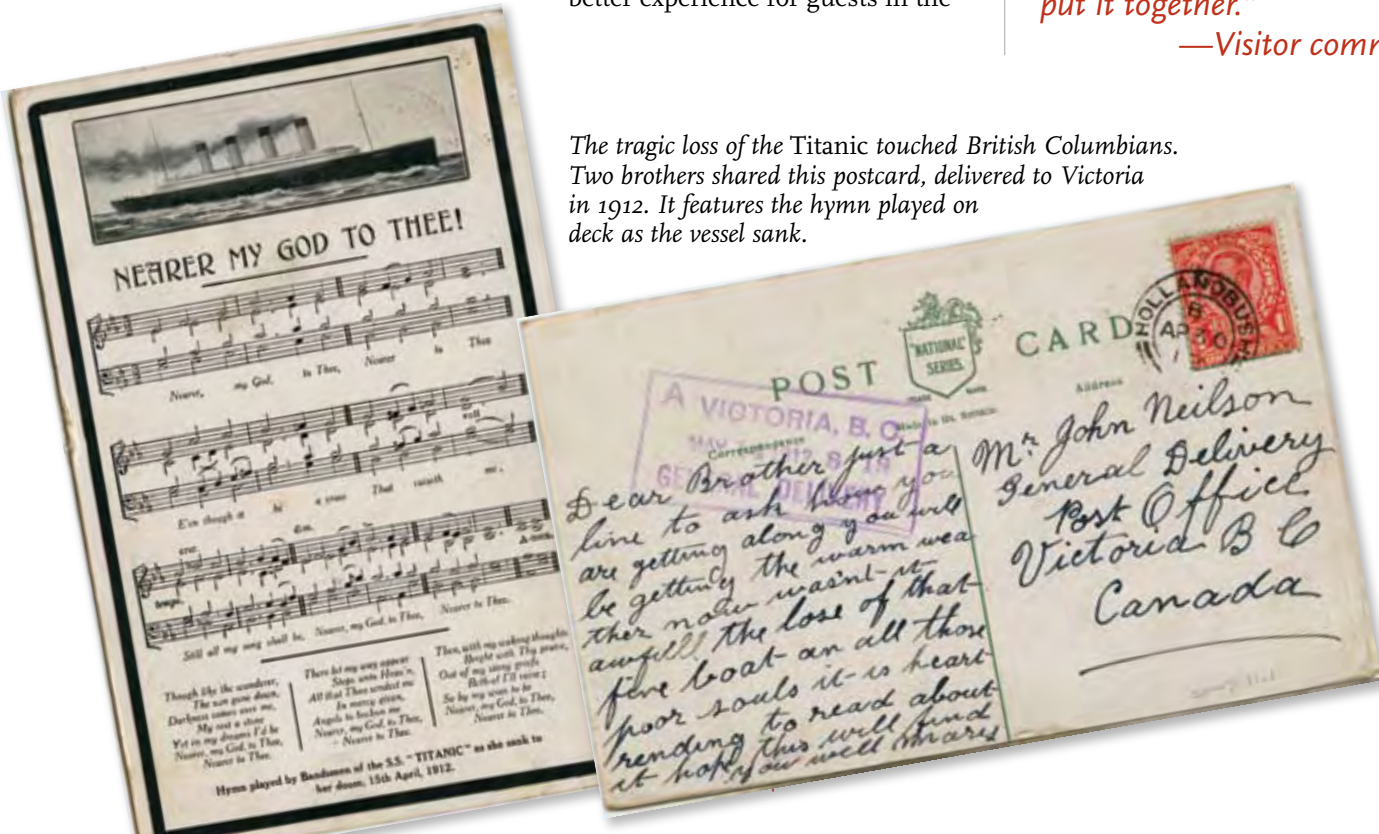 better experience for guests in the
put it together."
—Visitor comm
The tragic loss of the Titanic touched British Columbians.
Two brothers shared this postcard, delivered to Victoria
in 1912. It features the hymn played on
deck as the vessel sank.
NEARER MY GOD TO THEE!
Nearer, my God, to Thee, Nearer to Thee
E'en though it be a cross That raiseth me,
Still all my song shall be, Nearer, my God, to Thee, Nearer to Thee.
Though like the wanderer,
The sun gone down,
Darkness comes over me,
My rest a stone
Yet in my dreams I'd be
Nearer, my God, to Thee,
Nearer to Thee.
There let my way appear
Steps unto Heav'n,
All that Thou sendest me
In mercy given,
Angels to beckon me
Nearer, my God, to Thee,
Nearer to Thee.
Then, with my waking thoughts
Bright with Thy praise,
Out of my stony griefs
Bethel I'll raise;
So by my woes to be
Nearer, my God, to Thee,
Nearer to Thee.
Hymn played by Bandsmen of the S.S. "TITANIC" as she sank to
her doom, 15th April, 1912.
POST CARD
"NATIONAL"
SERIES
TRADE MARK
Correspondence
Address
HOLLANDBUSH
A VICTORIA, B. C.
MAY 1912
GENERAL DELIVERY
Dear Brother just a
line to ask how you
are getting along you will
be getting the warm wea
ther now wasnt it
awfull the lose of that
fine boat an all those
poor souls it is heart
rending to read about
it hope this will find
you well Maris
Mr John Neilson
General Delivery
Post Office
Victoria B C
Canada